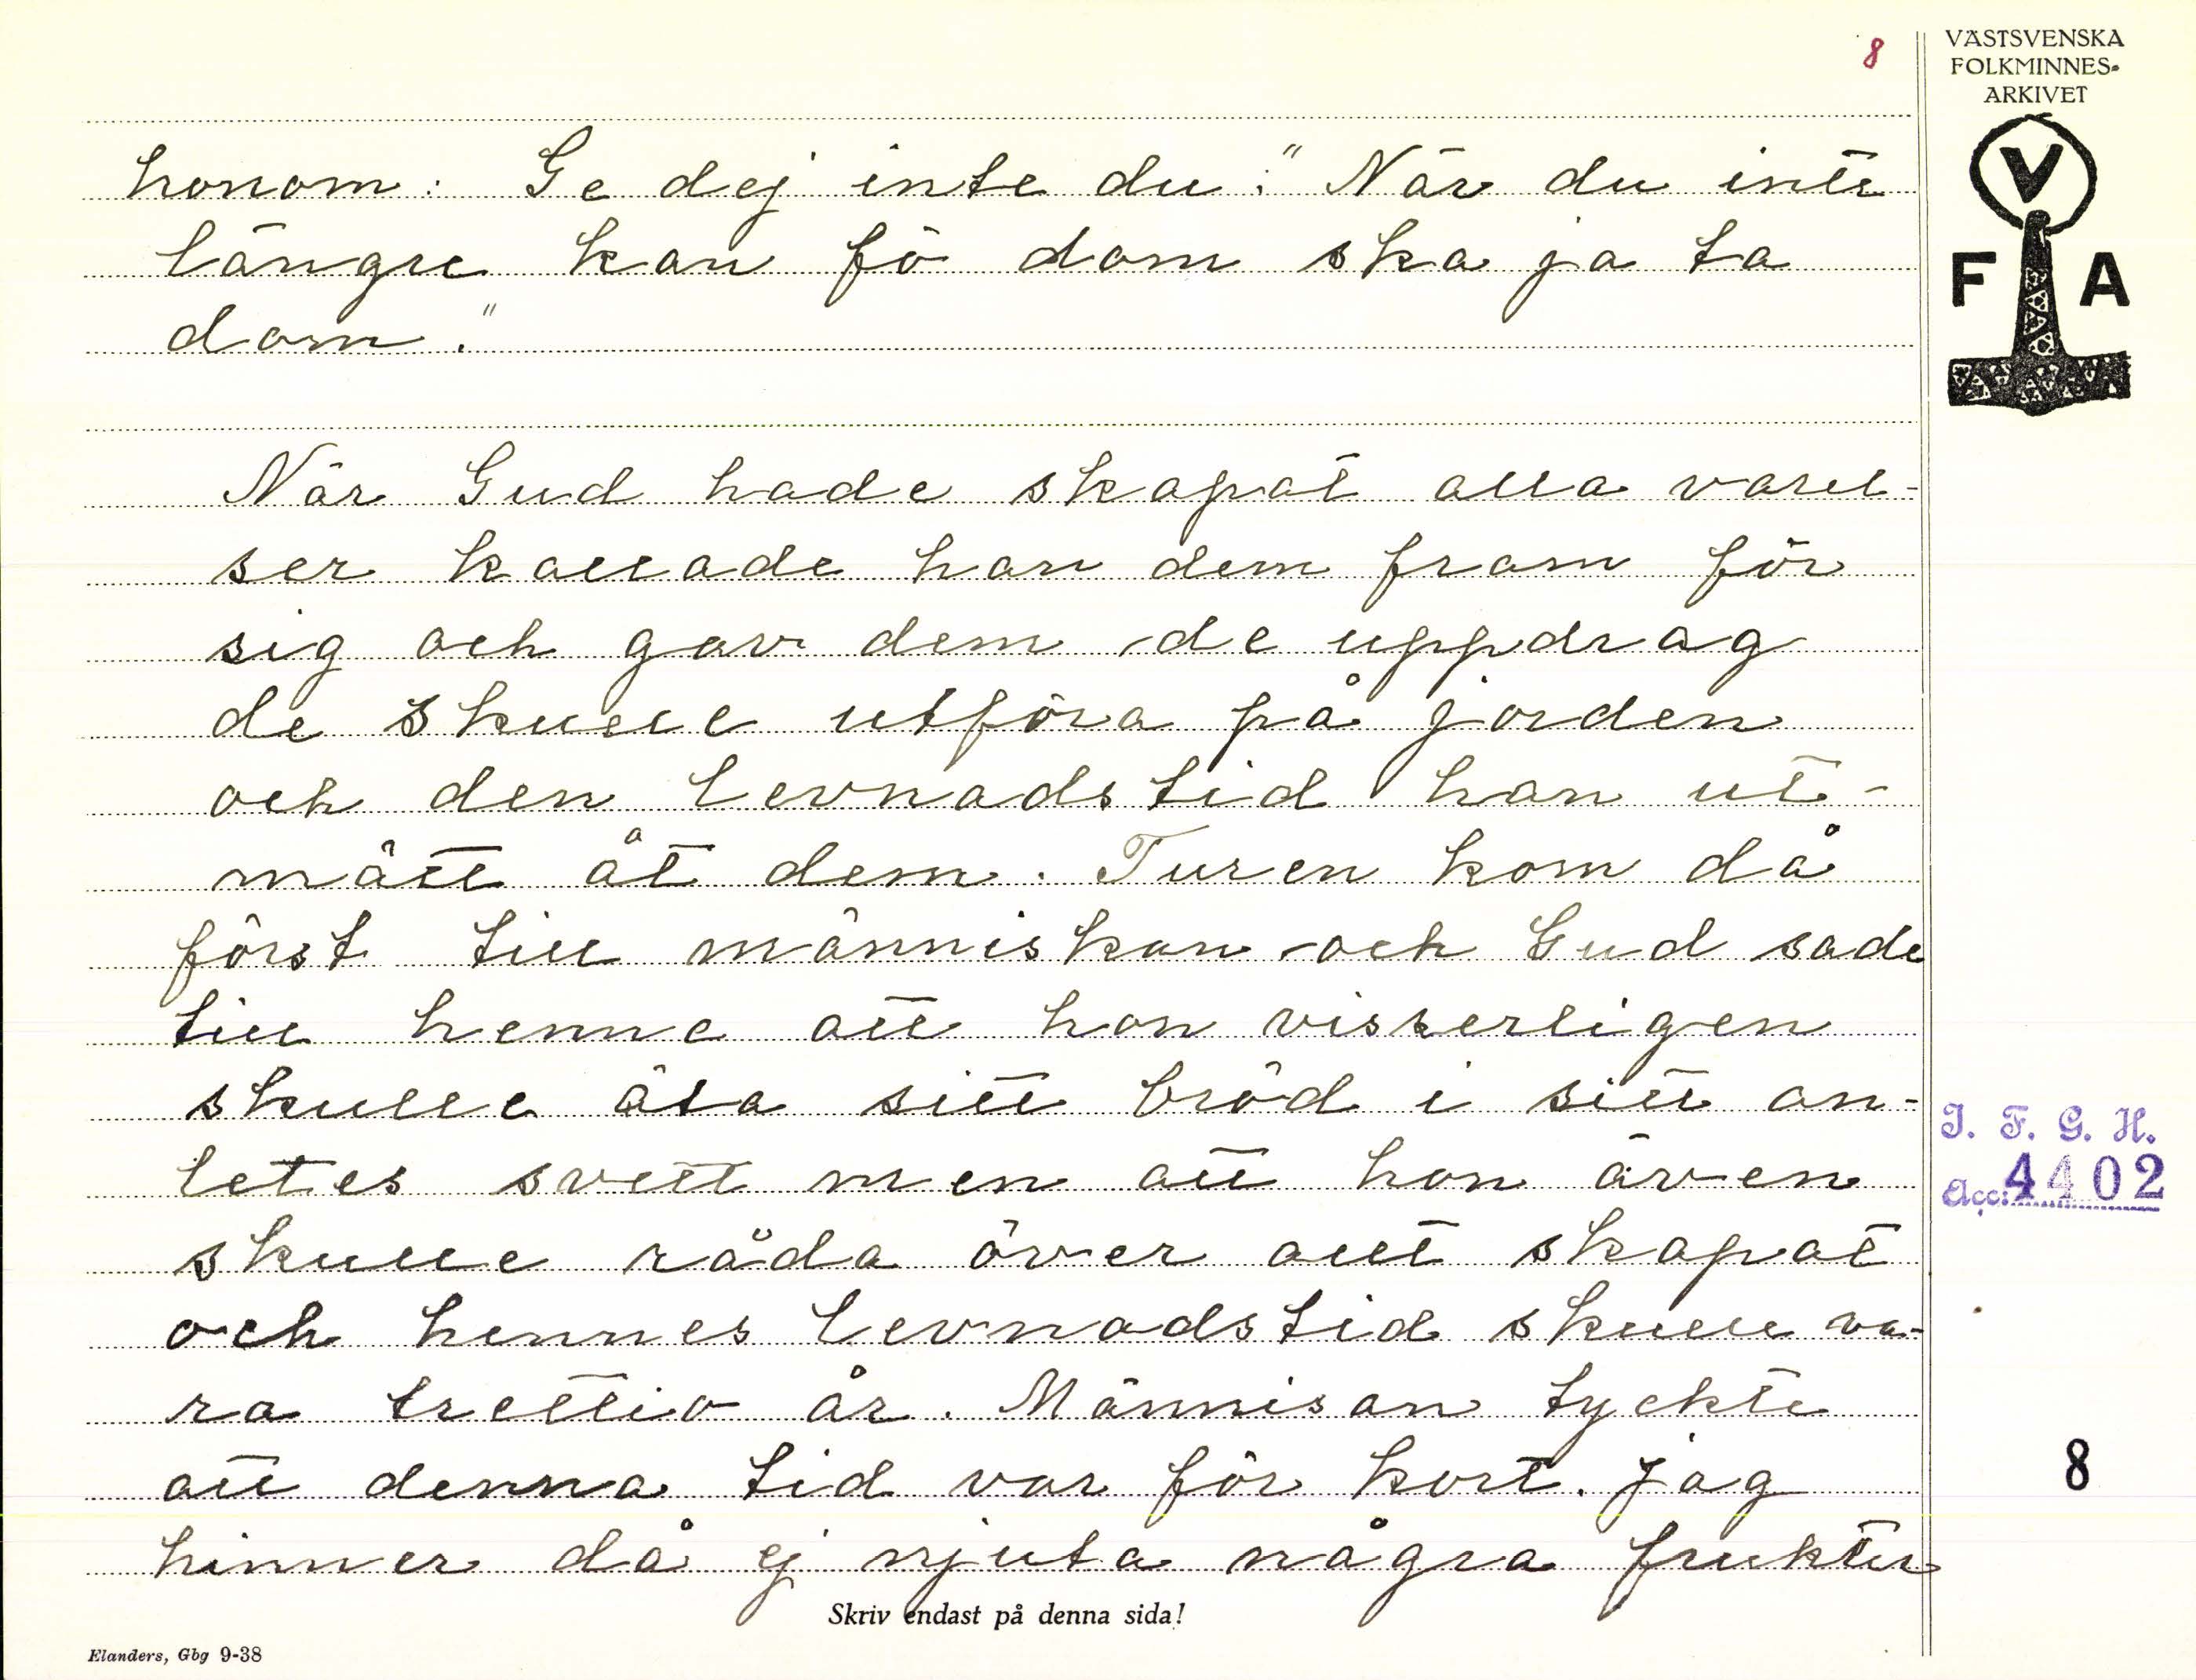 8
VÄSTSVENSKA
FOLKMINNES-
ARKIVET
V
F A
honom: Ge dej inte du." När du inte
längre kan fö dom ska ja ta
dom."
När Gud hade skapat alla varel-
ser kallade han dem fram för
sig och gav dem de uppdrag
de skulle utföra på jorden
och den levnadstid han ut-
mätt åt dem. Turen kom då
först till människan och Gud sade
till henne att hon visserligen
skulle äta sitt bröd i sitt an-
letes svett men att hon även
skulle råda över allt skapat
och hennes levnadstid skulle va-
ra trettio år. Männisan tyckte
att denna tid var för kort. Jag
hinner då ej njuta några frukter
I. F. G. H.
Acc: 4402
8
Skriv endast på denna sida!
Elanders, Gbg 9-38